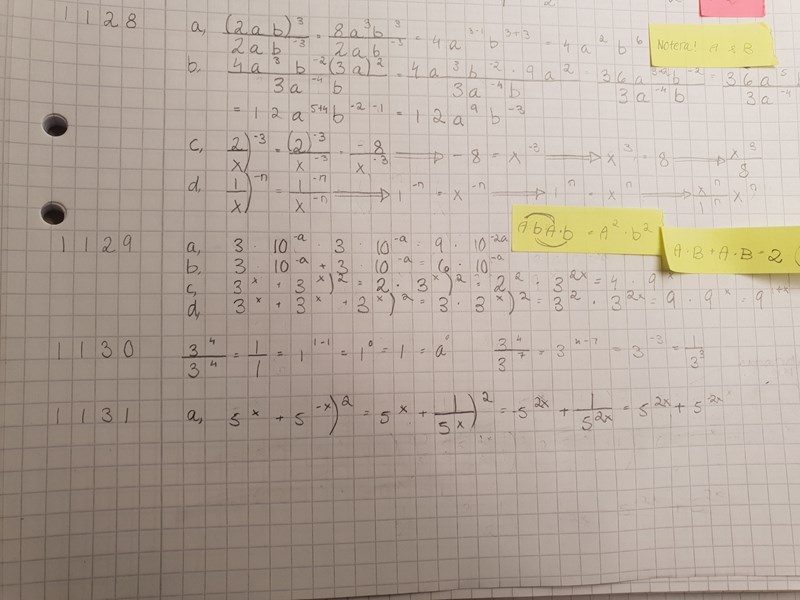 1128 a, (2ab)³/2ab⁻³ = 8a³b³/2ab⁻³ = 4a³⁻¹b³⁺³ = 4a²b⁶
Notera! A & B
b. 4a³b⁻²(3a)²/3a⁻⁴b = 4a³b⁻²·9a²/3a⁻⁴b = 36a³⁺²b⁻²/3a⁻⁴b = 36a⁵/3a⁻⁴
= 12a⁵⁺⁴b⁻²⁻¹ = 12a⁹b⁻³
c, 2/x)⁻³ = (2)⁻³/x⁻³ = -8/x⁻³ ⟹ -8 = x⁻³ ⟹ x³ = 8 ⟹ x³/8
d. 1/x)⁻ⁿ = 1⁻ⁿ/x⁻ⁿ ⟹ 1⁻ⁿ = x⁻ⁿ ⟹ 1ⁿ = xⁿ ⟹ xⁿ/1ⁿ xⁿ
AbA·b = A²·b²
A·B+A·B=2
1129 a, 3·10⁻ᵃ·3·10⁻ᵃ = 9·10⁻²ᵃ
b. 3·10⁻ᵃ + 3·10⁻ᵃ = 6·10⁻ᵃ
c, 3ˣ + 3ˣ)² = 2·3ˣ)² = 2²·3²ˣ = 4·9ˣ
d, 3ˣ + 3ˣ + 3ˣ)² = 3·3ˣ)² = 3²·3²ˣ = 9·9ˣ·9¹⁺ˣ
1130 3⁴/3⁴ = 1/1 = 1¹⁻¹ = 1⁰ = 1 = a⁰ 3⁴/3⁷ = 3⁴⁻⁷ = 3⁻³ = 1/3³
1131 a, 5ˣ + 5⁻ˣ)² = 5ˣ + 1/5ˣ)² = 5²ˣ + 1/5²ˣ = 5²ˣ + 5⁻²ˣ